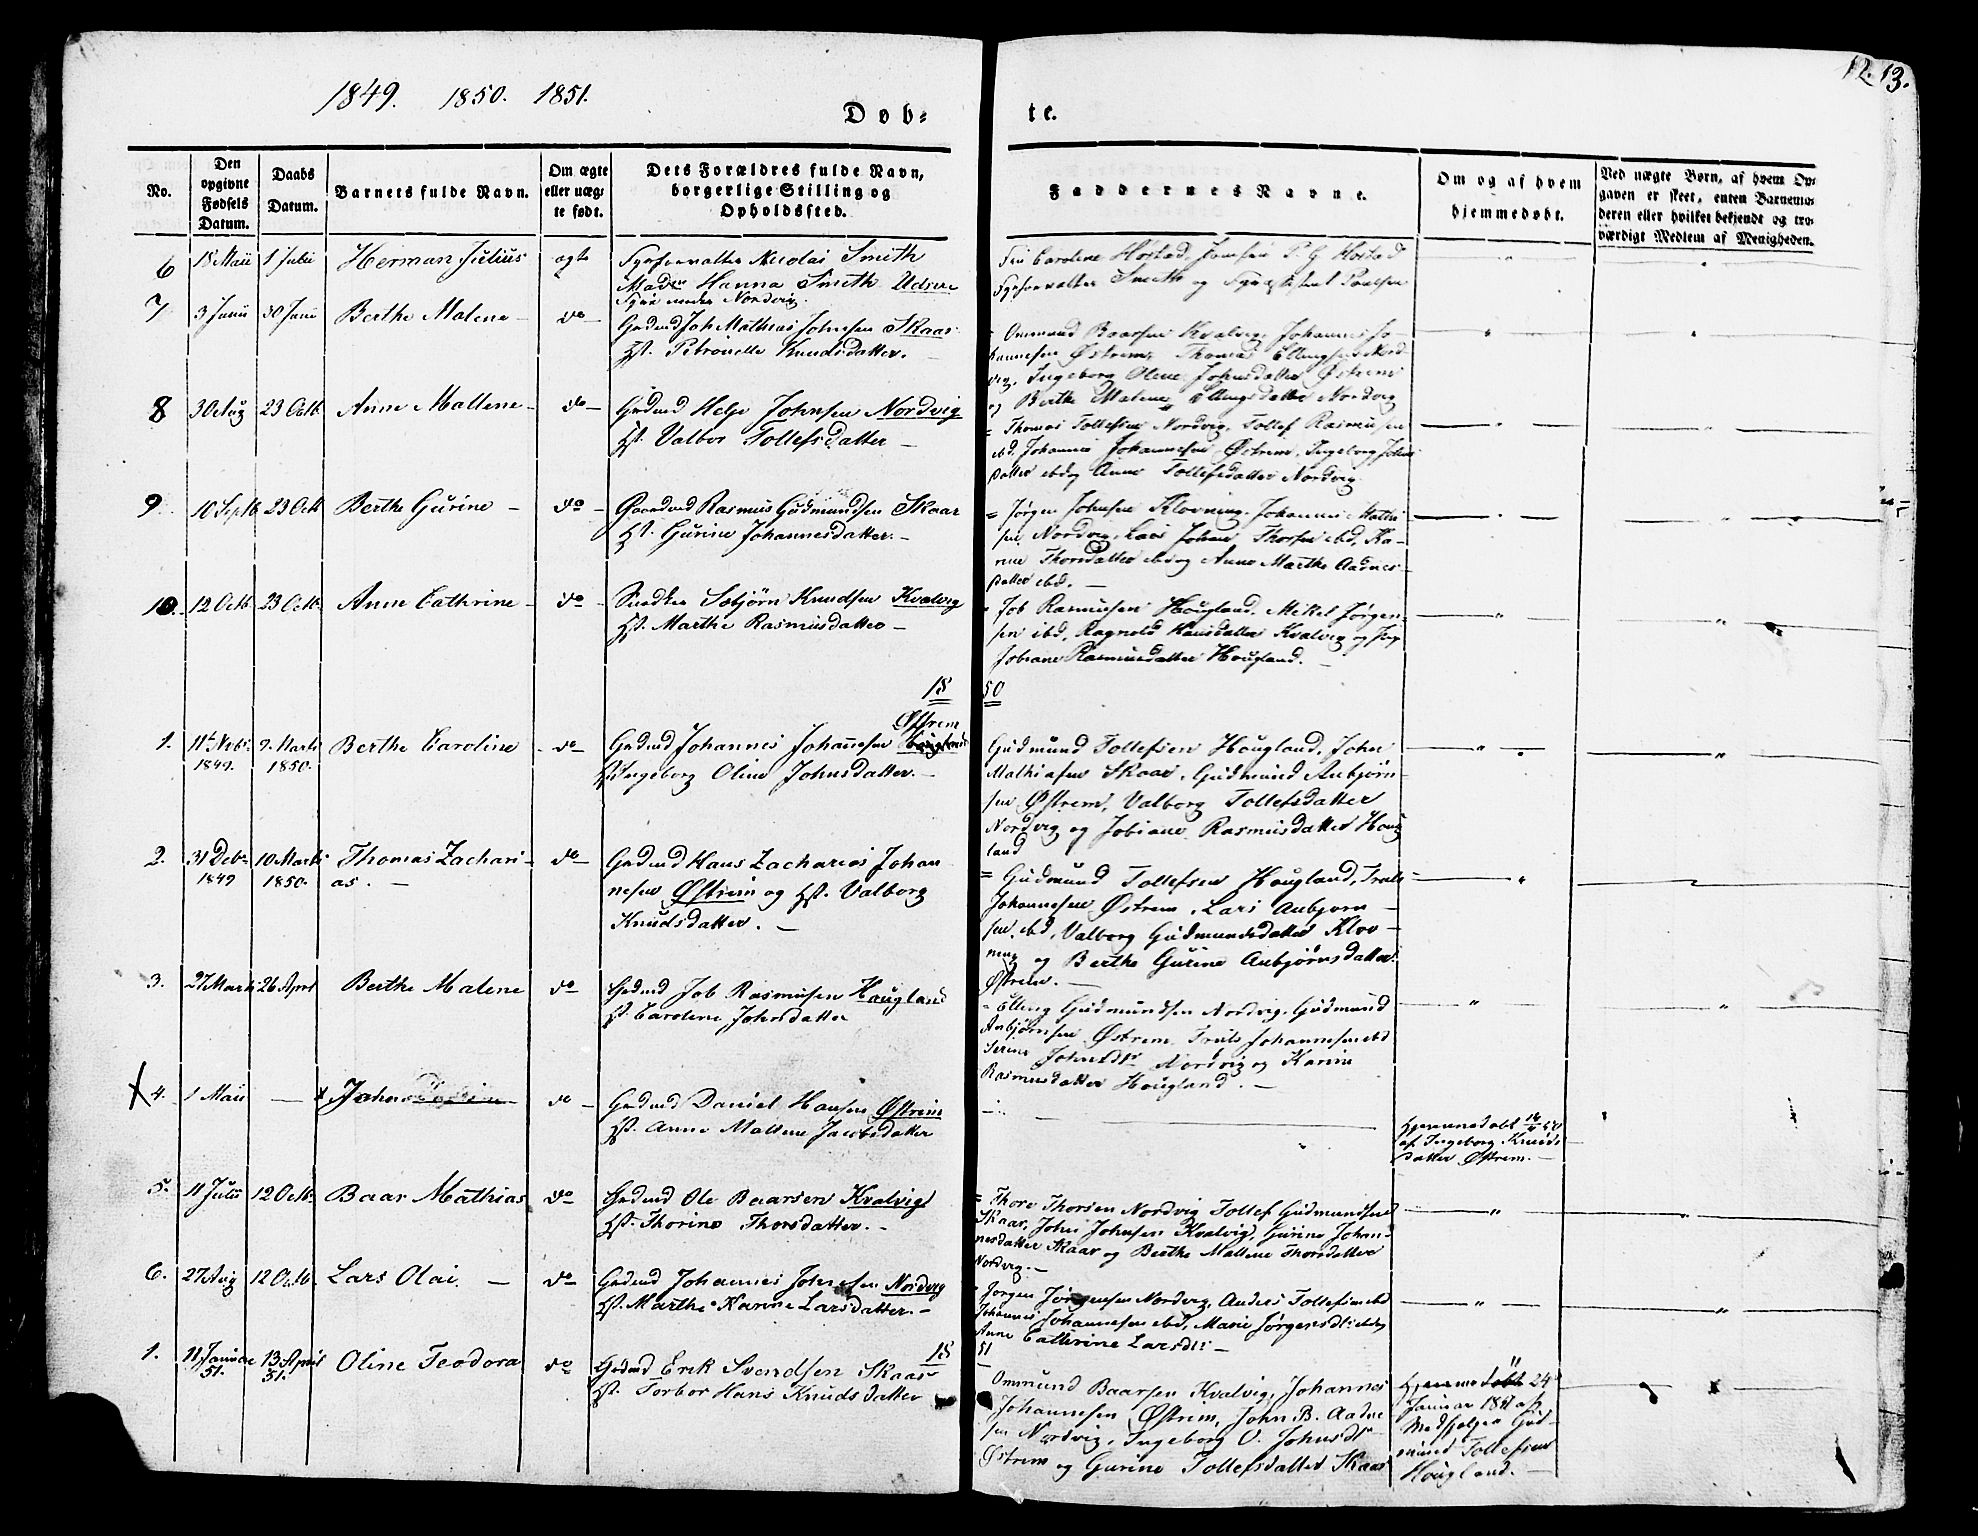 1849. 1850. 1851.
12. 13.
Døb-
te.
No.
Den opgivne Fødsels Datum.
Daabs Datum.
Barnets fulde Navn.
Om ægte eller uægte født.
Dets Forældres fulde Navn, borgerlige Stilling og Opholdssted.
Faddernes Navne.
Om og af hvem hjemmedøbt.
Ved uægte Børn, af hvem Opgaven er skeet, enten Barnemoderen eller hvilket bekjendt og troværdigt Medlem af Menigheden.
6 18 Maii 1 Julii Herman Julius ægte Fyrforvalter Nicolai Smith
Hanna Smith Udsire
Fyr Nordvig.
Caroline Høstad, P. G. Høstad
Fyrforvalter Smith og Fyrassistent Poulsen
7 3 Junii 30 Junii Berthe Malene do Gaardmd Joh Mathias Johnsen Skaar
Hst. Petronelle Knudsdatter.
Ommund Baarsen Kvalvig, Johannes Jo-
hannesen Østrem, Thomas Ellingsen Nord-
vig, Ingeborg Oline Johnsdatter Østrem
og Berthe Malene Ellingsdatter Nordvig
8 30 Aug 23 Octb. Anne Mallene do Gaardmd Helje Johnsen Nordvig
Hst. Valbor Tollefsdatter
Thomas Tollefsen Nordvig, Tollef Rasmusen
ibd, Johannes Johannesen Østrem, Ingeborg Johns
datter ibd og Anne Tollefsdatter Nordvig
9 10 Septb 23 Octb Berthe Gurine do Gaardmd Rasmus Gudmundsen Skaar
Hst. Gurine Johannesdatter.
Jørgen Johnsen Klovning, Johannes Mathi
sen Nordvig, Lars Johan Thorsen ibd, Ka-
rine Thorsdatter ibd og Anne Marthe Aadnes-
datter ibd.
10. 12 Octb. 23 Octb. Anne Cathrine do Snedker Sebjørn Knudsen Kvalvig
Hst. Marthe Rasmusdatter
Job Rasmusen Hougland, Mikel Jørgen-
sen ibd, Ragnold Hansdatter Kvalvig og
Jobiane Rasmusdatter Hougland.
18 50
Østrem
1. 11te Nvbr. 1849. 9. Marts 1850. Berthe Caroline do Gaardmd Johannes Johannesen Hougland
Hst Ingeborg Oline Johnsdatter.
Gudmund Tollefsen Hougland, John
Mathiasen Skaar, Gudmund Anbjørn
sen Østrem, Valborg Tollefsdatter
Nordvig og Jobiane Rasmusdatter Houg
land
2. 31 Debr. 1849 10 Marts 1850. Thomas Zachari-
as.
do Gaardmd Hans Zacharias Johan
nesen Østrem og Hst. Valborg
Knudsdatter.
Gudmund Tollefsen Hougland, Truls
Johannesen Østrem, Lars Anbjørn
sen, ibd, Valborg Gudmundsdatter Klov-
ning og Berthe Gurine Anbjørnsdatter
Østrem.
3. 27 Marts 26 April Berthe Malene do Gaardmd Job Rasmusen Hougland
Hst. Caroline Johnsdatter
Elling Gudmundsen Nordvig, Gudmund
Anbjørnsen Østrem, Truls Johannesen ibd
Serine Johnsdtr Nordvig og Karine
Rasmusdatter Hougland.
4. 1 Maii do Gaardmd Daniel Hansen Østrem
Hst. Anne Mallene Jacobsdatter
Hjemmedøbt
af Ingeborg Knuds
datter Østrem.
5. 11 Julii 12 Octb. Baar Mathias do Gaardmd Ole Baarsen Kvalvig
Hst. Thorine Thorsdatter.
Thore Thorsen Nordvig Tollef Gudmundsen
Skaar, John Johnsen Kvalvig, Gurine Johan-
nesdatter Skaar og Berthe Mallene Thorsdatter
Nordvig.
6. 27 Aug 12 Octb. Lars Olai. do Gaardmd Johannes Johnsen Nordvig
Hst. Marthe Karine Larsdatter.
Jørgen Jørgensen Nordvig, Anders Tollefsen ibd
Johannes Johannesen ibd, Marie Jørgensdtr ibd og
Anne Cathrine Larsdtr
18 51
1. 11 Januar 51. 13 April 51. Oline Teodora do Gaardmd Erik Svendsen Skaar
Hst. Torbor Hans Knudsdatter
Ommund Baarsen Kvalvig, Johannes
Johannesen Østrem, John B. Aadne
sen Nordvig, Ingeborg O. Johnsdtr
Østrem og Gurine Tollefsdatter Skaar
Hjemmedøbt 24
Januar af
Medhjelper Gud-
mund Tollefsen
Hougland.